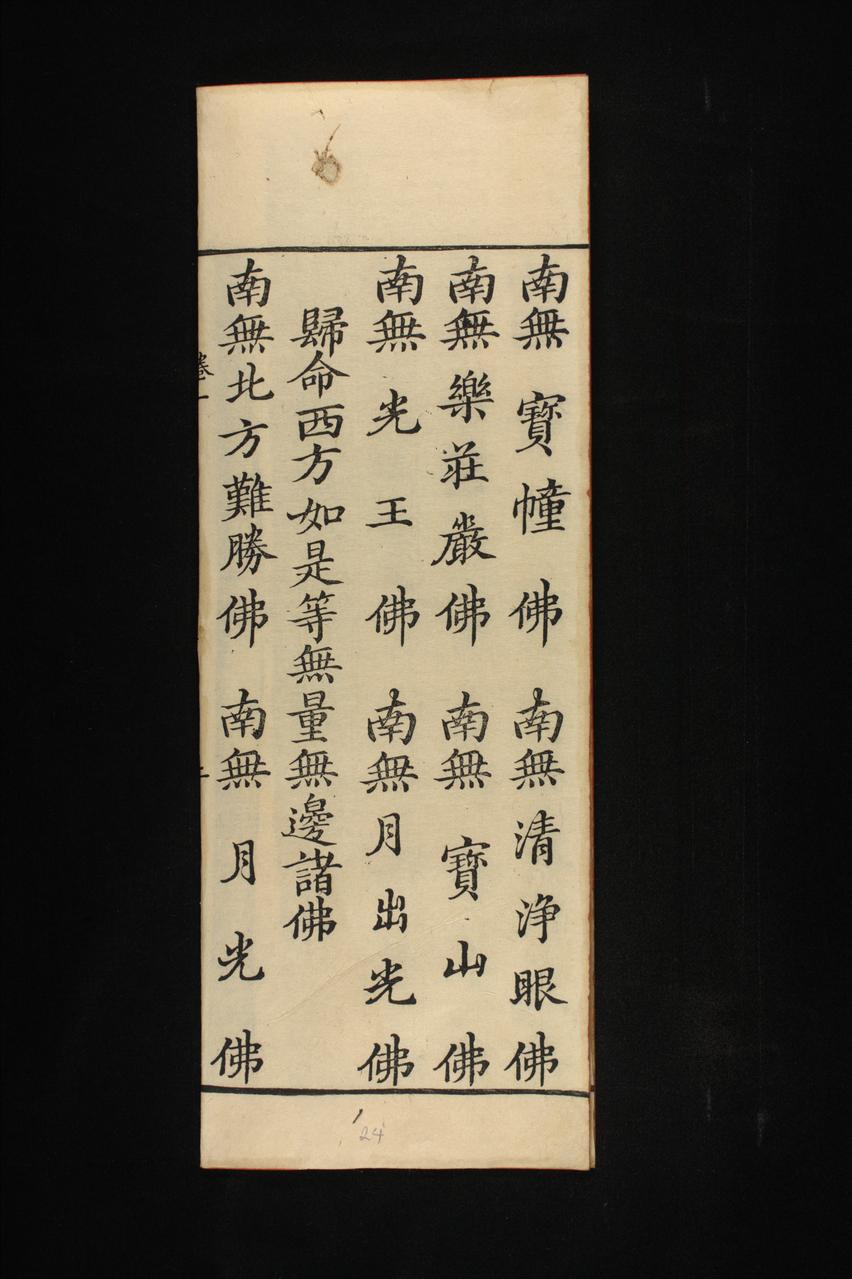 南無寶幢佛 南無清淨眼佛
南無樂莊嚴佛 南無寶山佛
南無光王佛 南無月出光佛
歸命西方如是等無量無邊諸佛
南無北方難勝佛 南無月光佛
卷一
24